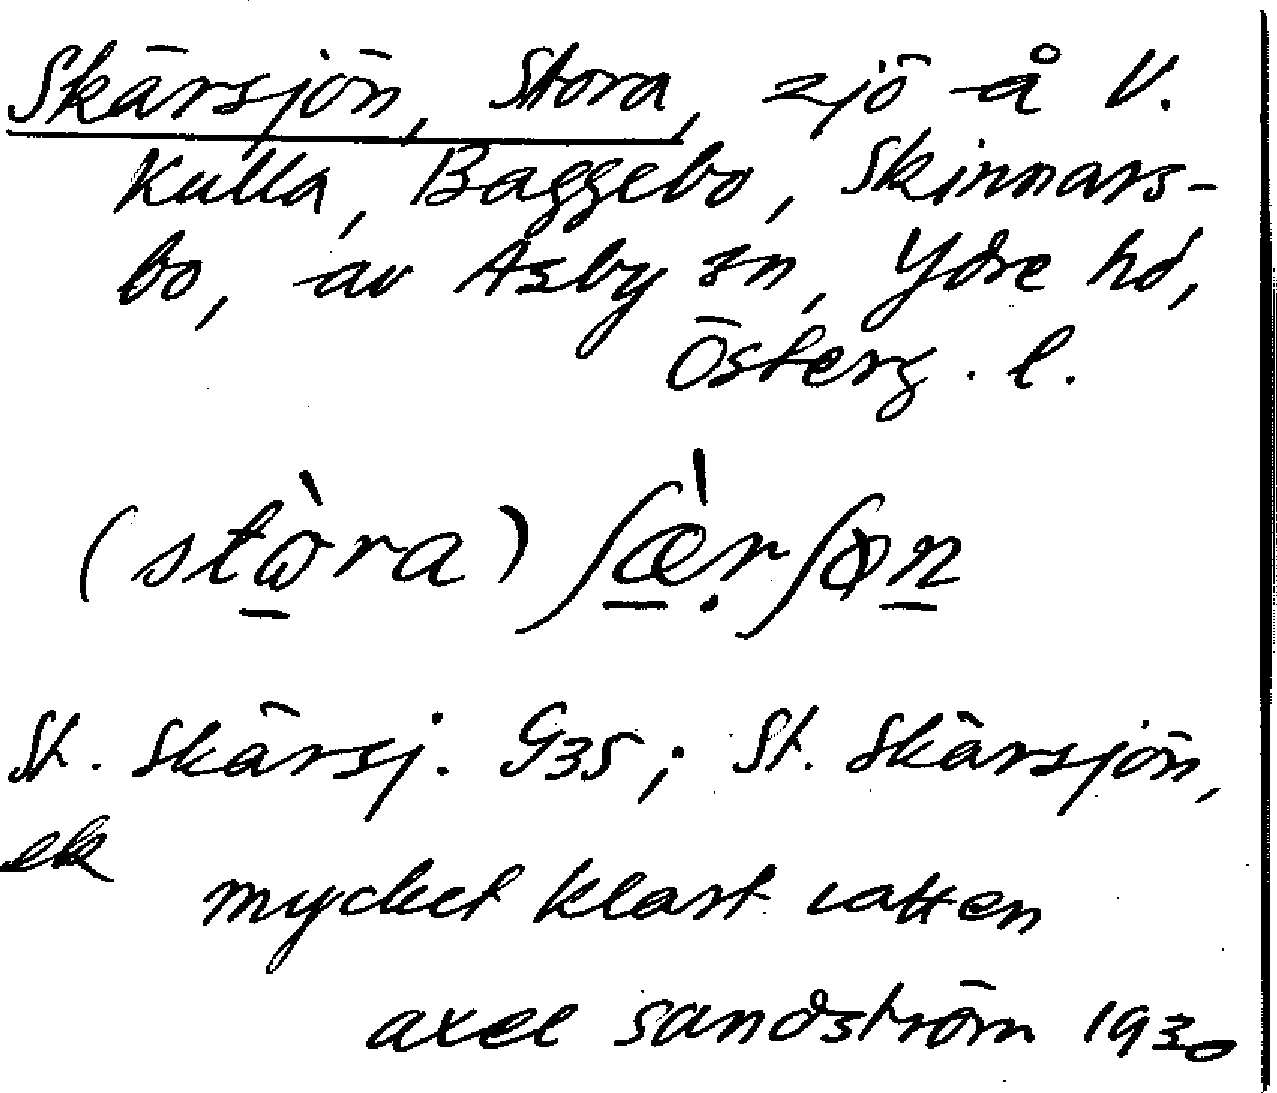 Skärsjön, Stora, sjö å V.
Kulla, Baggebo, Skinnars-
bo, av Asby sn, Ydre hd,
Österg. l.
(stò̠ra) ʃæ̠̀rʃøn̠
St. Skärsj. G35; St. Skärsjön,
ek
mycket klart vatten
Axel Sandström 1930